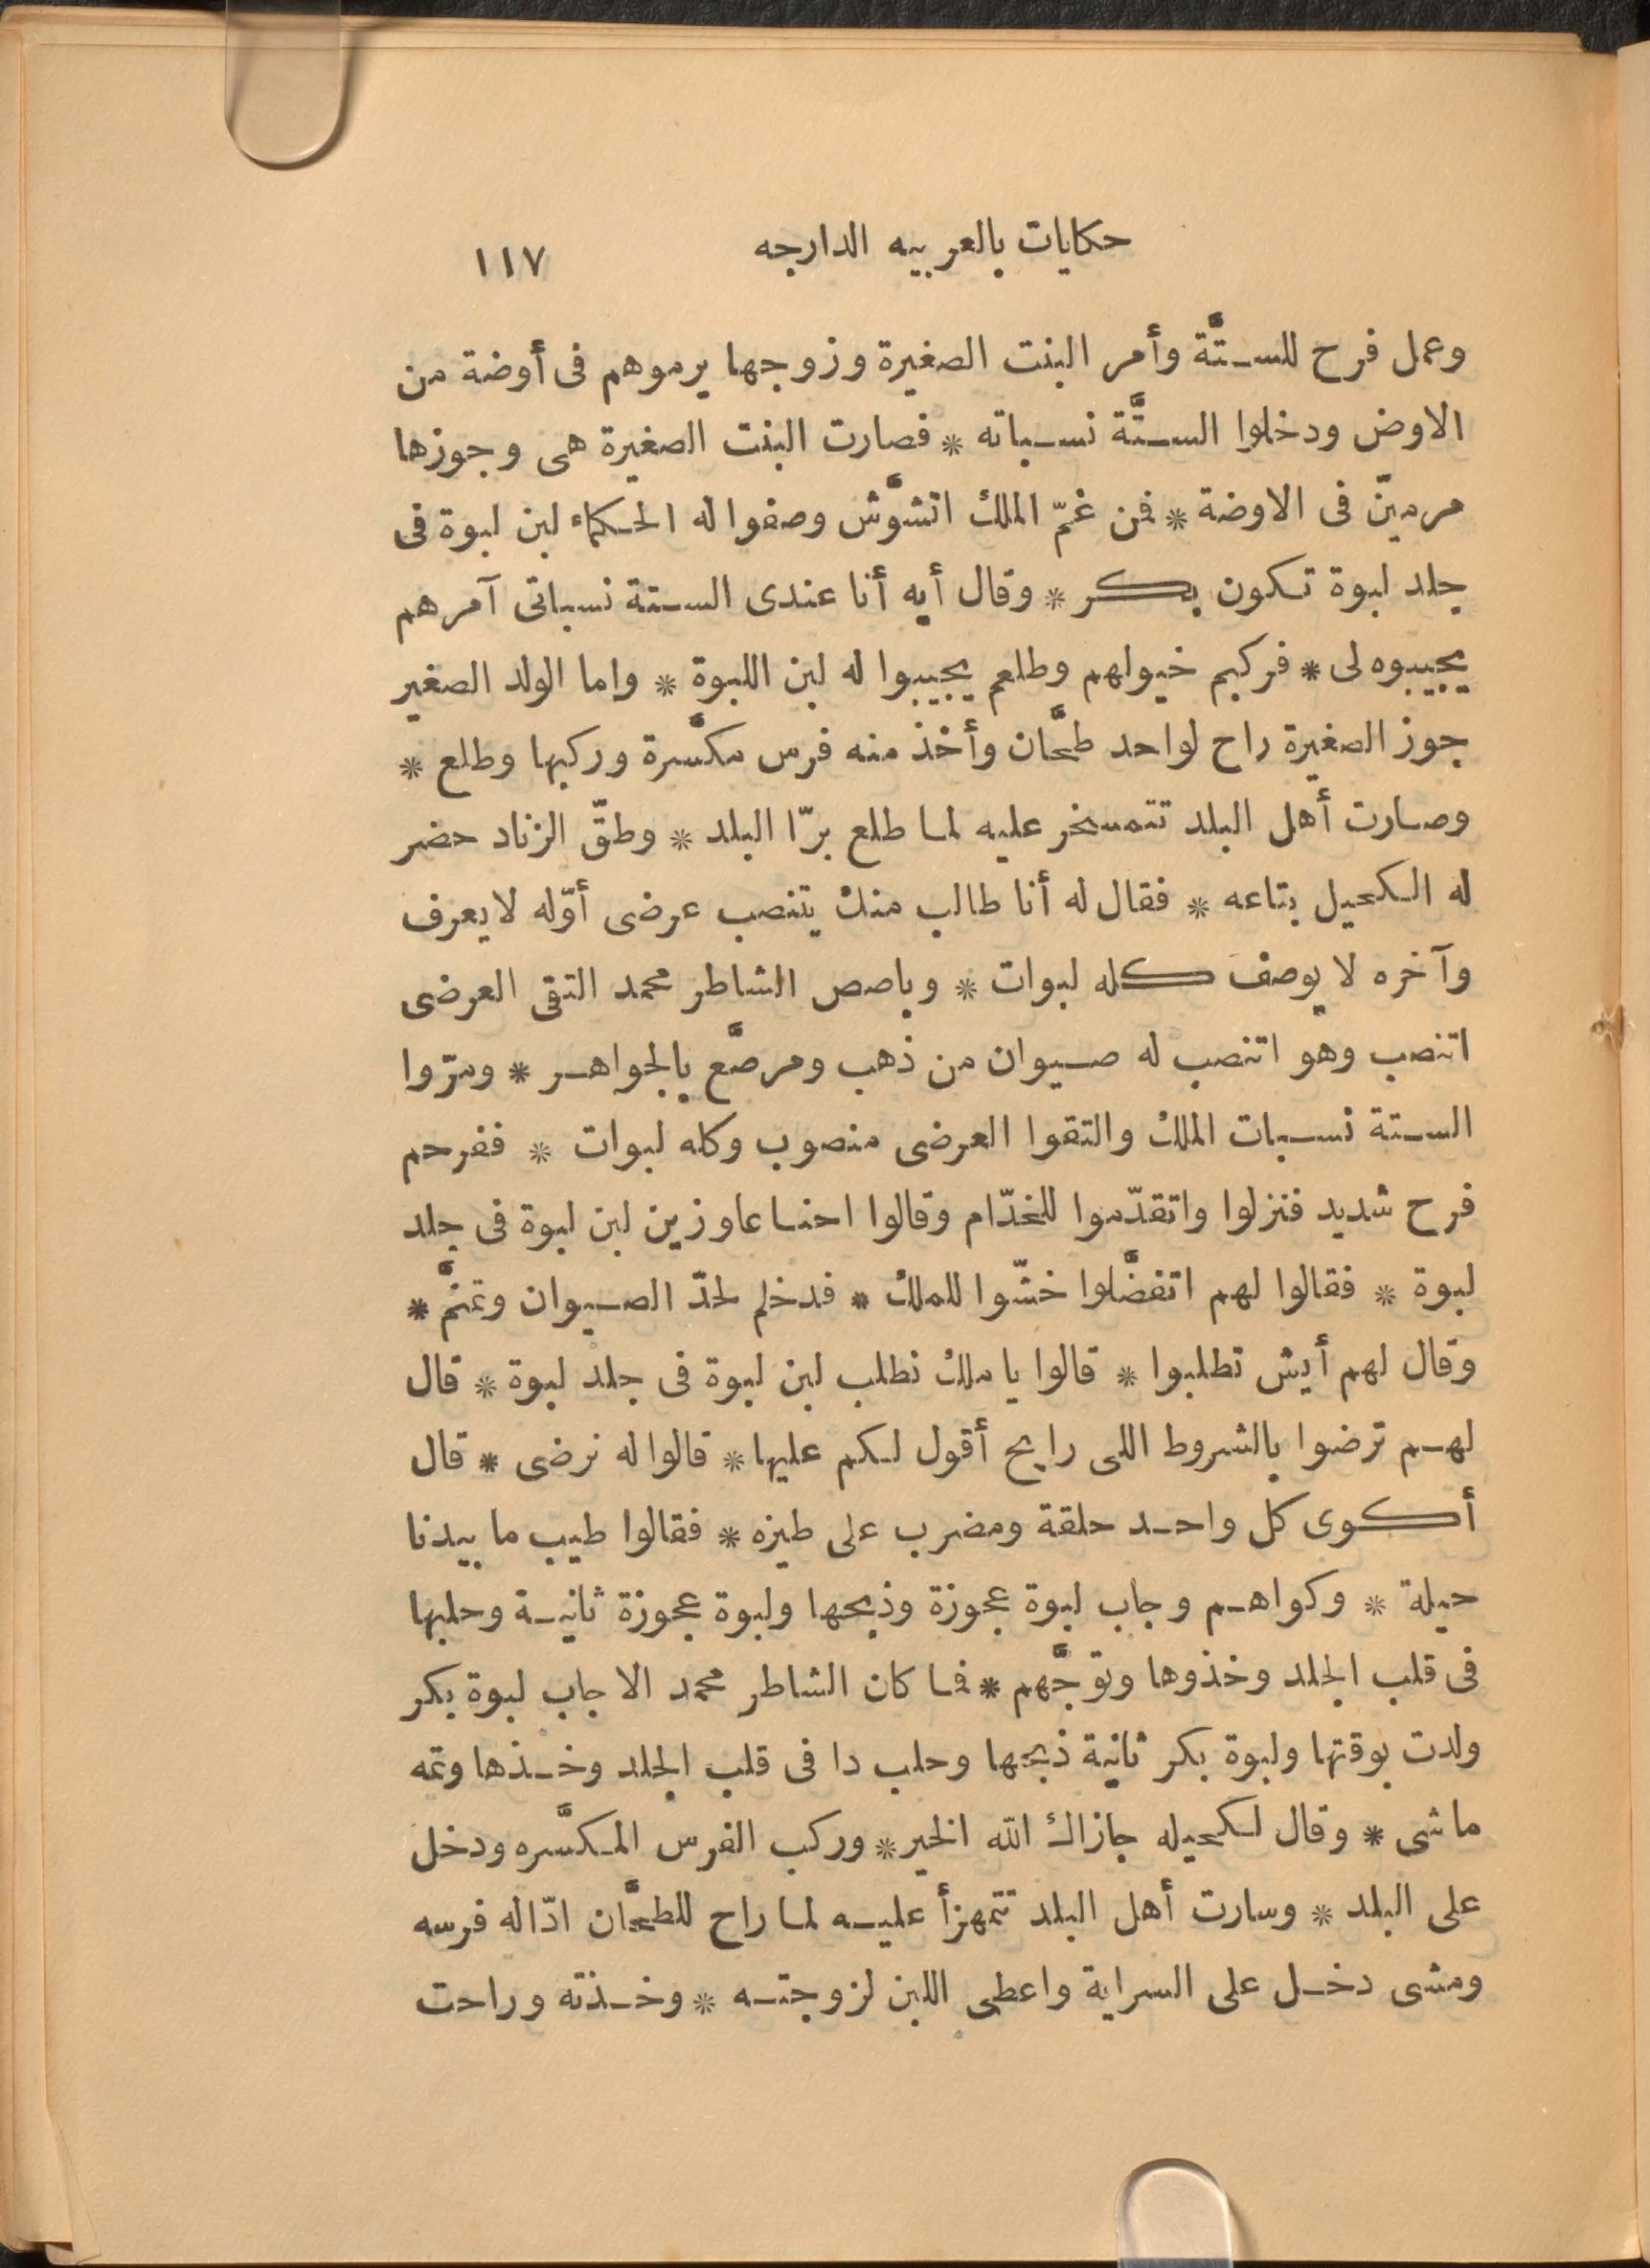 حكايات بالعربيه الدارجه ١١٧
وعمل فرح للستَّة وأمر البنت الصغيرة وزوجها يرموهم فى أوضة من
الاوض ودخلوا الستَّة نسباته * فصارت البنت الصغيرة هى وجوزها
مرميّن فى الاوضة * فمن غمّ الملك اتشوَّش وصفوا له الحكماء لبن لبوة فى
جلد لبوة تكون بكر * وقال أيه أنا عندى الستة نسباتى آمرهم
يجيبوه لى * فركبم خيولهم وطلعم يجيبوا له لبن اللبوة * واما الولد الصغير
جوز الصغيرة راح لواحد طحَّان وأخذ منه فرس مكسَّرة وركبها وطلع *
وصارت أهل البلد تتمسخر عليه لما طلع برّا البلد * وطقّ الزناد حضر
له الكحيل بتاعه * فقال له أنا طالب منك يتنصب عرضى أوّله لا يعرف
وآخره لا يوصف كله لبوات * وباصص الشاطر محمد التقى العرضى
اتنصب وهو اتنصب له صيوان من ذهب ومرصَّع بالجواهر * ومرّوا
الستة نسبات الملك والتقوا العرضى منصوب وكله لبوات * ففرحم
فرح شديد فنزلوا واتقدّموا للخدّام وقالوا احنا عاوزين لبن لبوة فى جلد
لبوة * فقالوا لهم اتفضَّلوا خشّوا للملك * فدخلم لحدّ الصيوان وتمنَّم *
وقال لهم أيش تطلبوا * قالوا يا ملك نطلب لبن لبوة فى جلد لبوة * قال
لهم ترضوا بالشروط اللى رايح أقول لكم عليها * قالوا له نرضى * قال
أكوى كل واحد حلقة ومضرب على طيزه * فقالوا طيب ما بيدنا
حيلة * وكواهم وجاب لبوة عجوزة وذبحها ولبوة عجوزة ثانية وحلبها
فى قلب الجلد وخذوها وتوجَّهم * فما كان الشاطر محمد الا جاب لبوة بكر
ولدت بوقتها ولبوة بكر ثانية ذبحها وحلب دا فى قلب الجلد وخذها وتمه
ماشى * وقال لكحيله جازاك الله الخير * وركب الفرس المكسَّره ودخل
على البلد * وسارت أهل البلد تتمهزأ عليه لما راح للطحَّان ادّاله فرسه
ومشى دخل على السراية واعطى اللبن لزوجته * وخذته وراحت